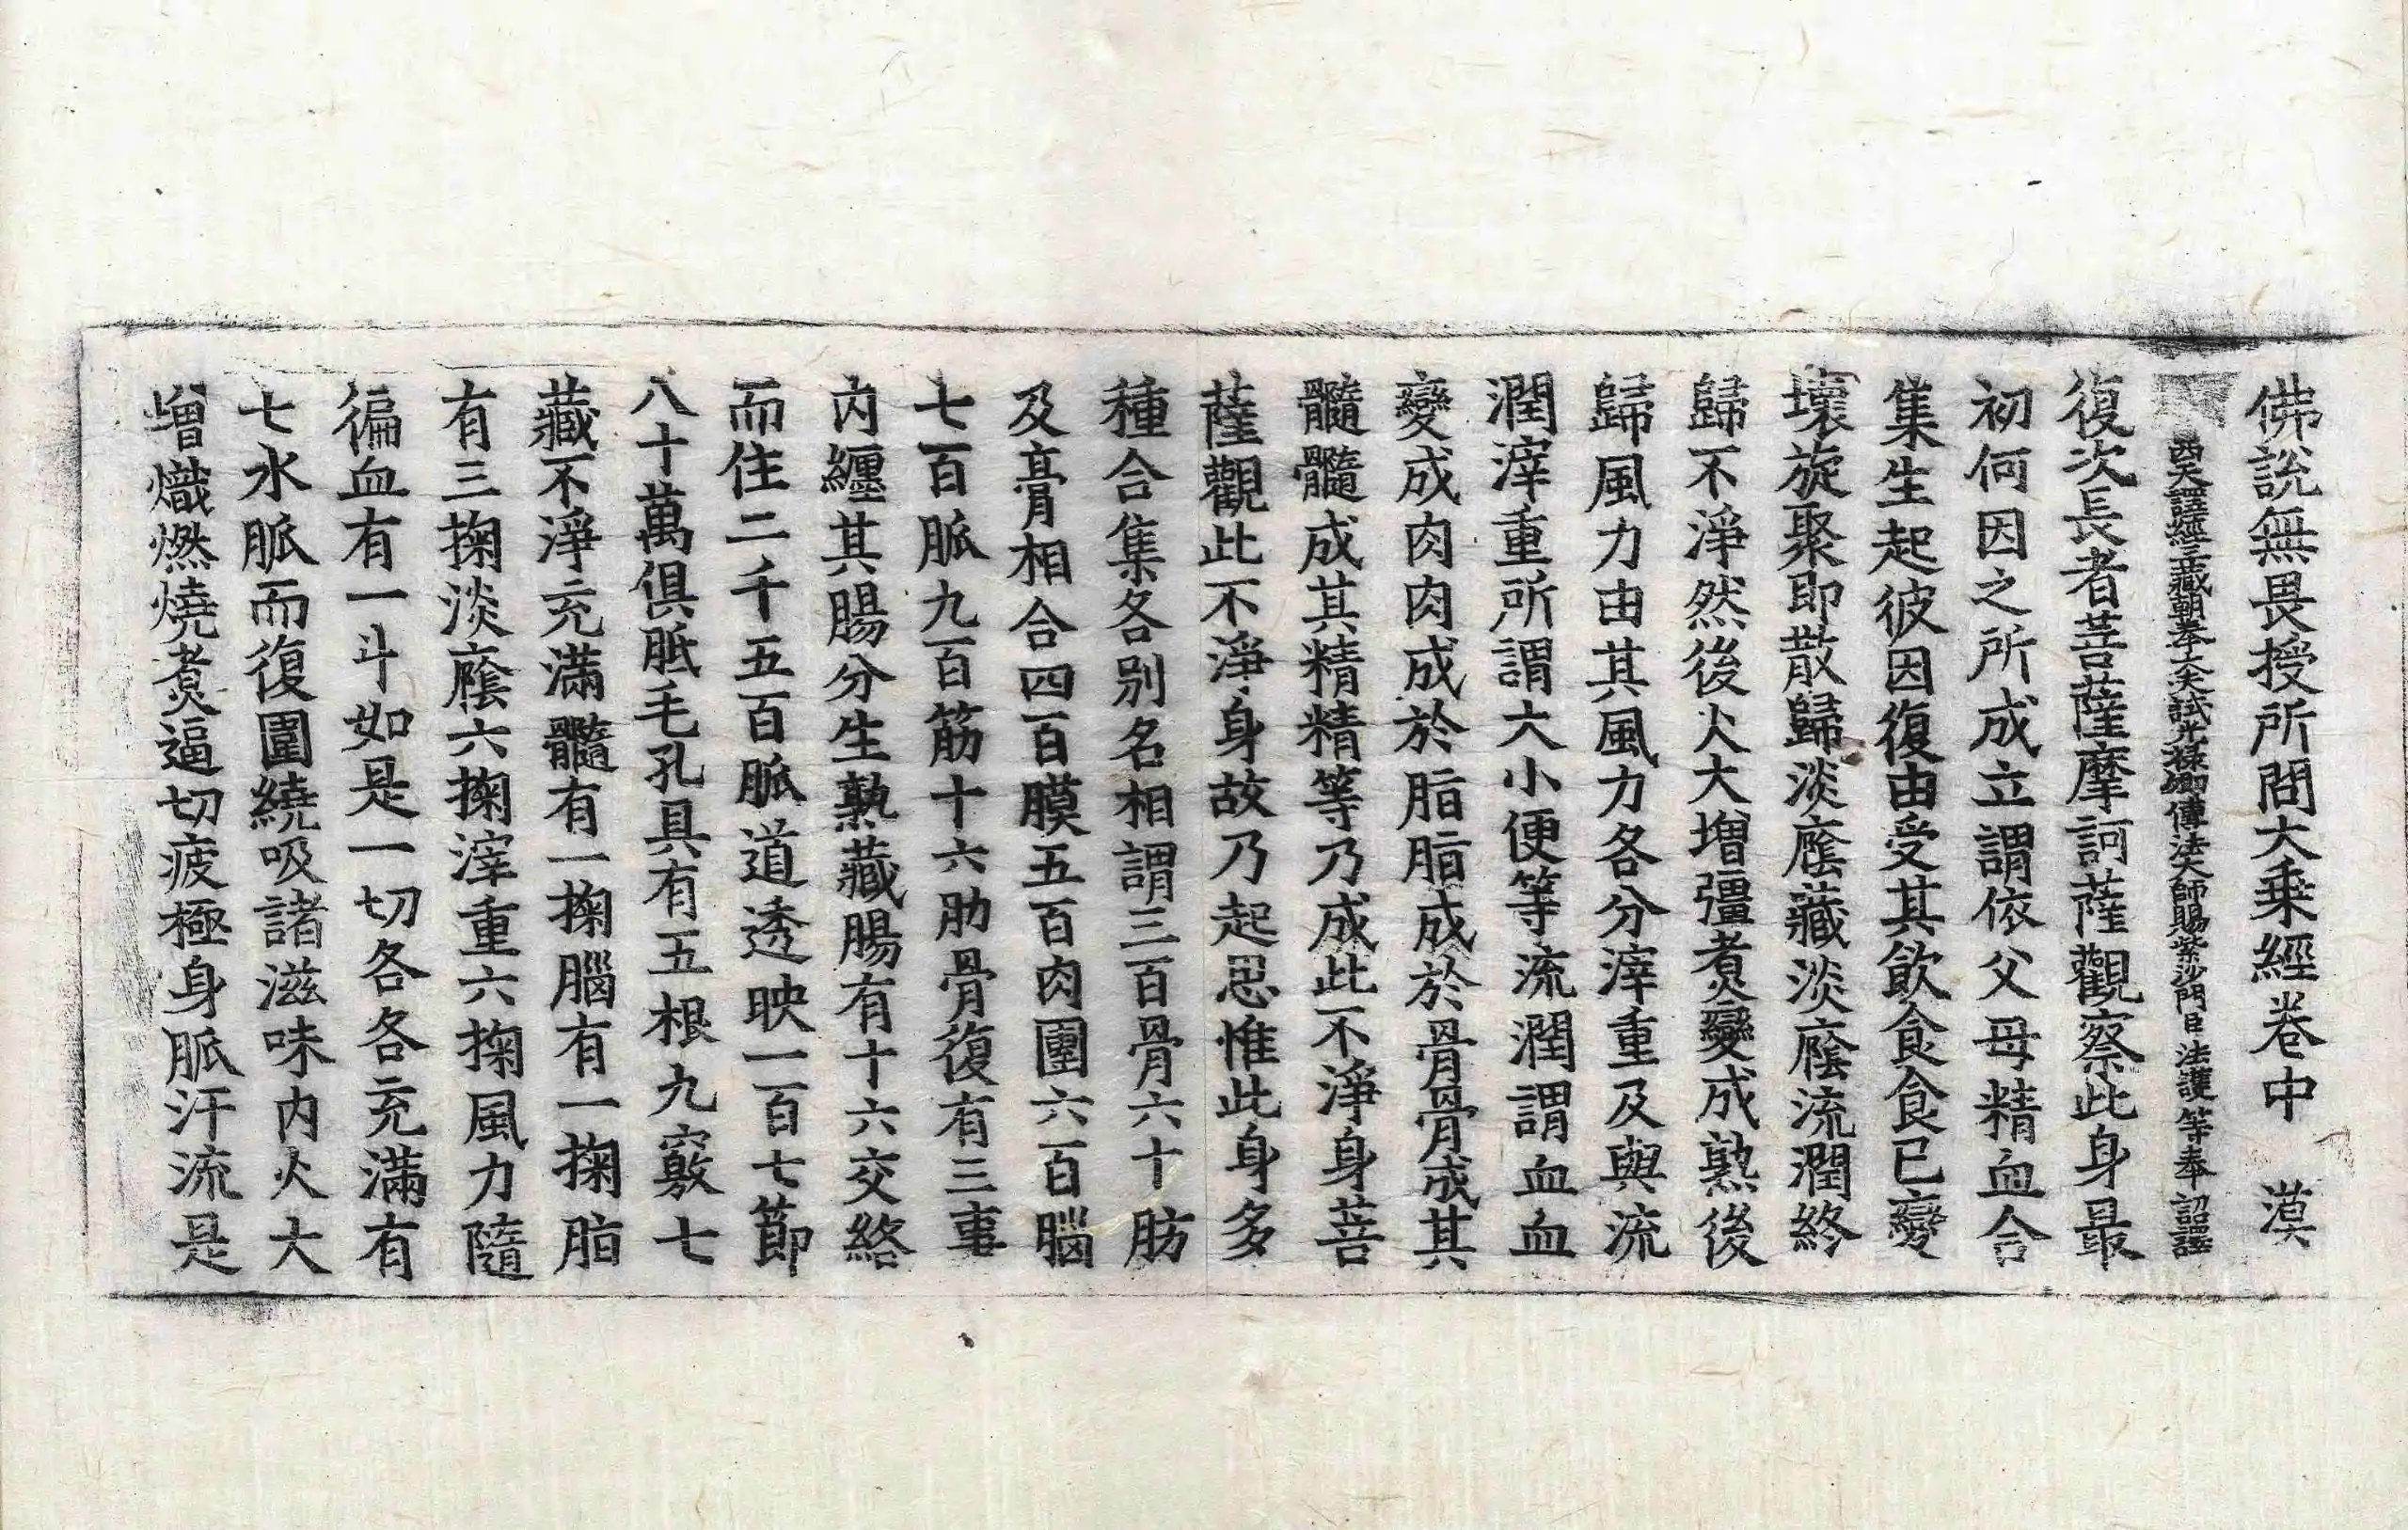 佛說無畏授所問大乗經卷中　漠
西天譯經三藏朝奉大夫試光祿卿傳法大師賜紫沙門臣法護等奉　詔譯
復次長者菩薩摩訶薩觀察此身最
初何因之所成立謂依父母精血合
集生起彼因復由受其飲食食已變
壞旋聚即散歸淡癊藏淡癊流潤終
歸不淨然後火大增彊煮變成熟後
歸風力由其風力各分滓重及與流
潤滓重所謂大小便等流潤謂血血
變成肉肉成於脂脂成於骨骨成其
髓髓成其精精等乃成此不淨身菩
薩觀此不淨身故乃起思惟此身多
種合集各別名相謂三百骨六十肪
及膏相合四百膜五百肉團六百腦
七百脈九百筋十六肋骨復有三事
內纏其腸分生熟藏腸有十六交絡
而住二千五百脈道透映一百七節
八十萬俱胝毛孔具有五根九竅七
藏不淨充滿髓有一掬腦有一掬脂
有三掬淡癊六掬滓重六掬風力隨
徧血有一斗如是一切各各充滿有
七水脈而復圍繞吸諸滋味內火大
增熾燃燒煮逼切疲極身脈汗流是